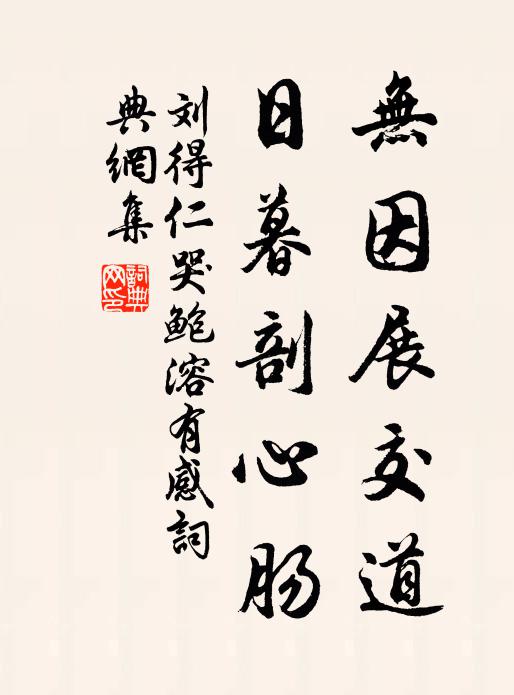 無因展交道
日暮剖心肠
刘得仁哭鲍溶有感詞
典網集
詞典网印